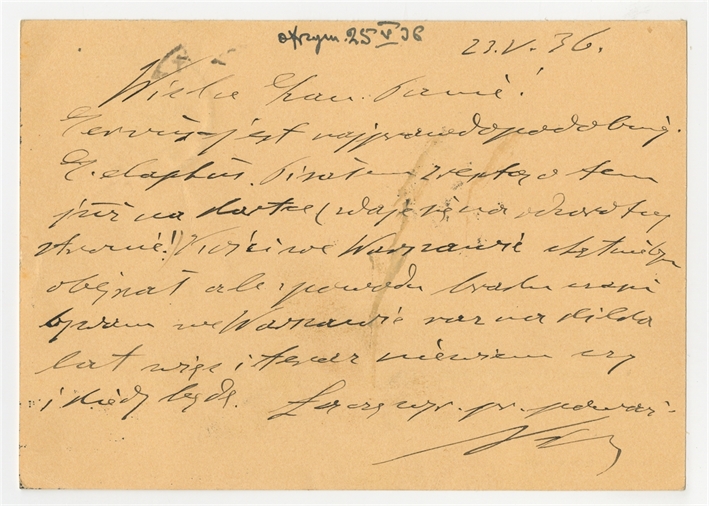 otrzym. 25 V 36
23.V.36.
Wielce Szan. Panie!
Cervus jest najprawdopodobniej
C. elaphus. Pisałem zresztą o tem
już na kartce (zdaje się na odwrotnej
stronie!) Kości we Warszawie chętnie bym
obejrzał ale z powodu braku
bywam we Warszawie raz na kilka
lat więc i teraz nie wiem czy
i kiedy będę. Łączę wyr. pr. poważ.